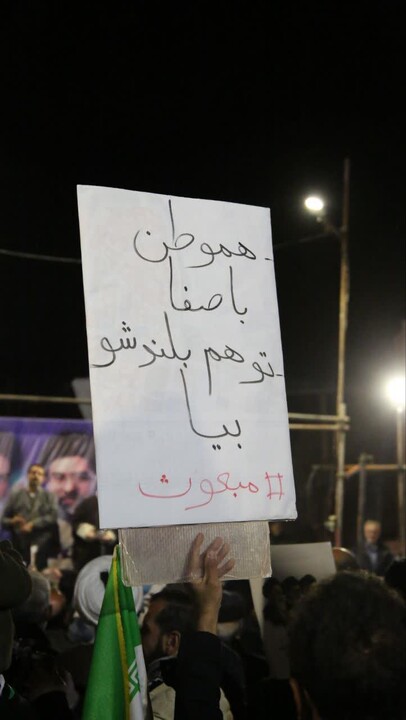 - هموطن
باصفا
- تو هم بلند شو
بیا
#مبعوث